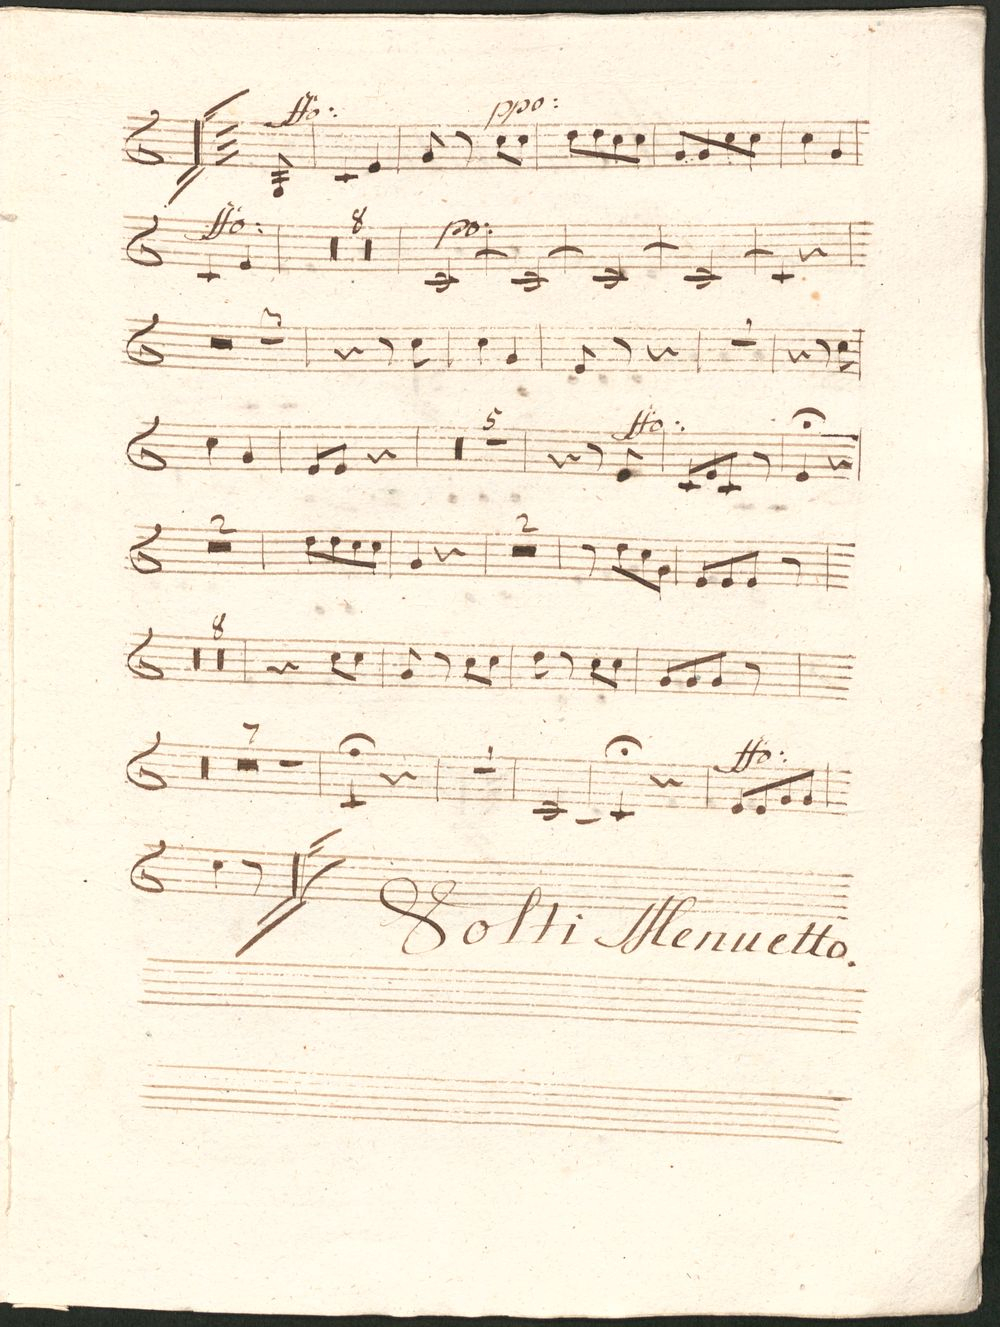 ffo: ppo:
ffo: 8 po:
5 ffo:
2 2
8
7 ffo:
Volti Menuetto.